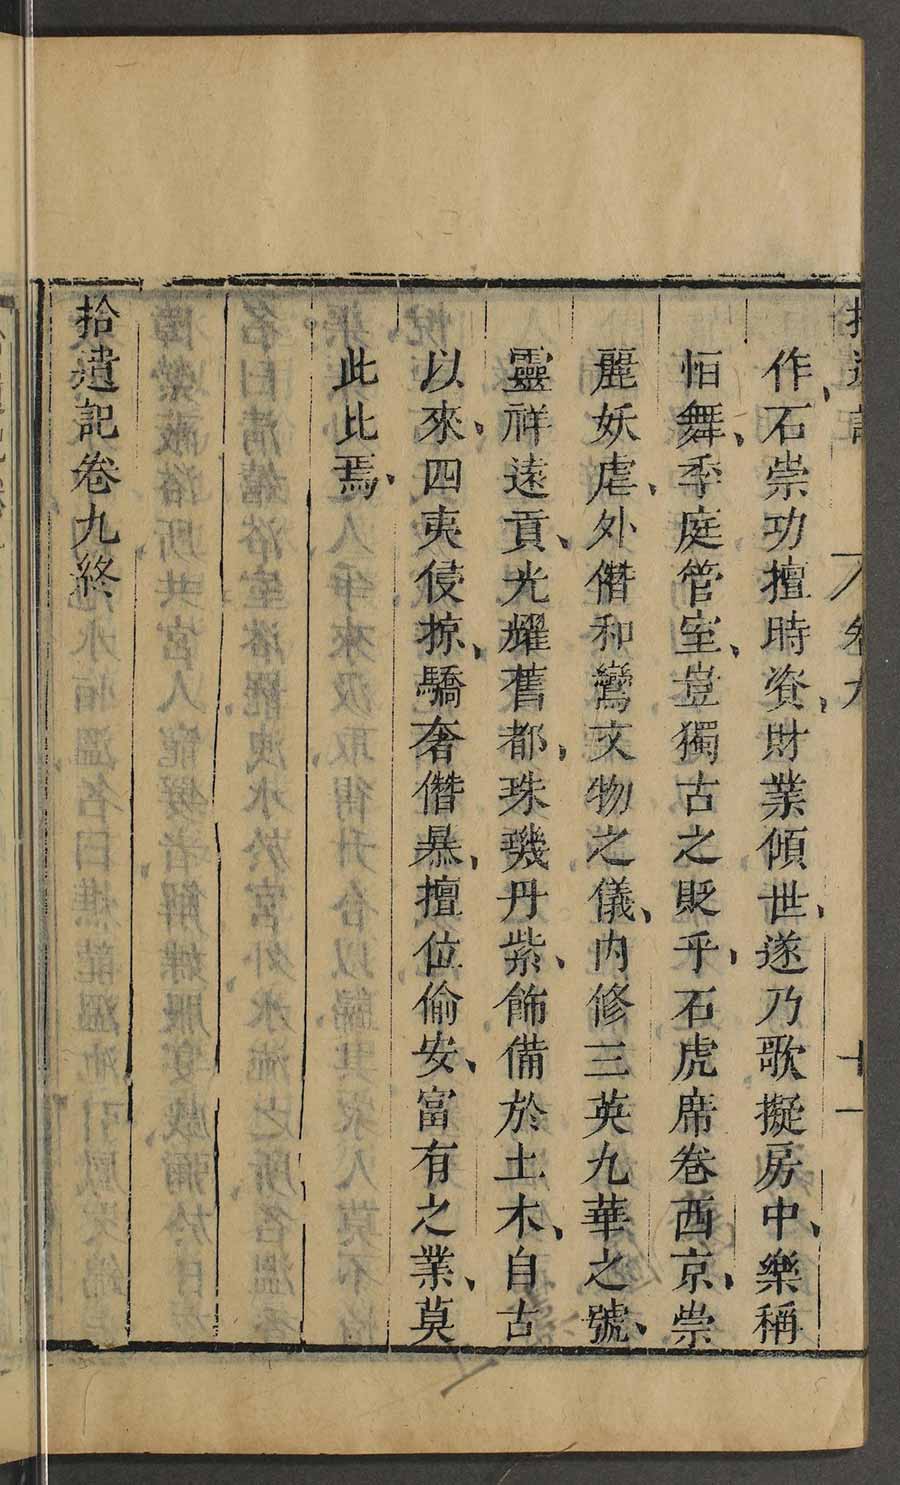 拾遺記
卷九
十一
作石崇功擅時資財業傾世遂乃歌擬房中樂稱
恒舞季庭管室豈獨古之貶乎石虎席卷西京崇
麗妖虐外僭和鸞文物之儀内修三英九華之號
靈祥遠貢光耀舊都珠璣丹紫飾備於土木自古
以來四夷侵掠驕奢僭暴擅位偷安富有之業莫
此比焉
拾遺記卷九終